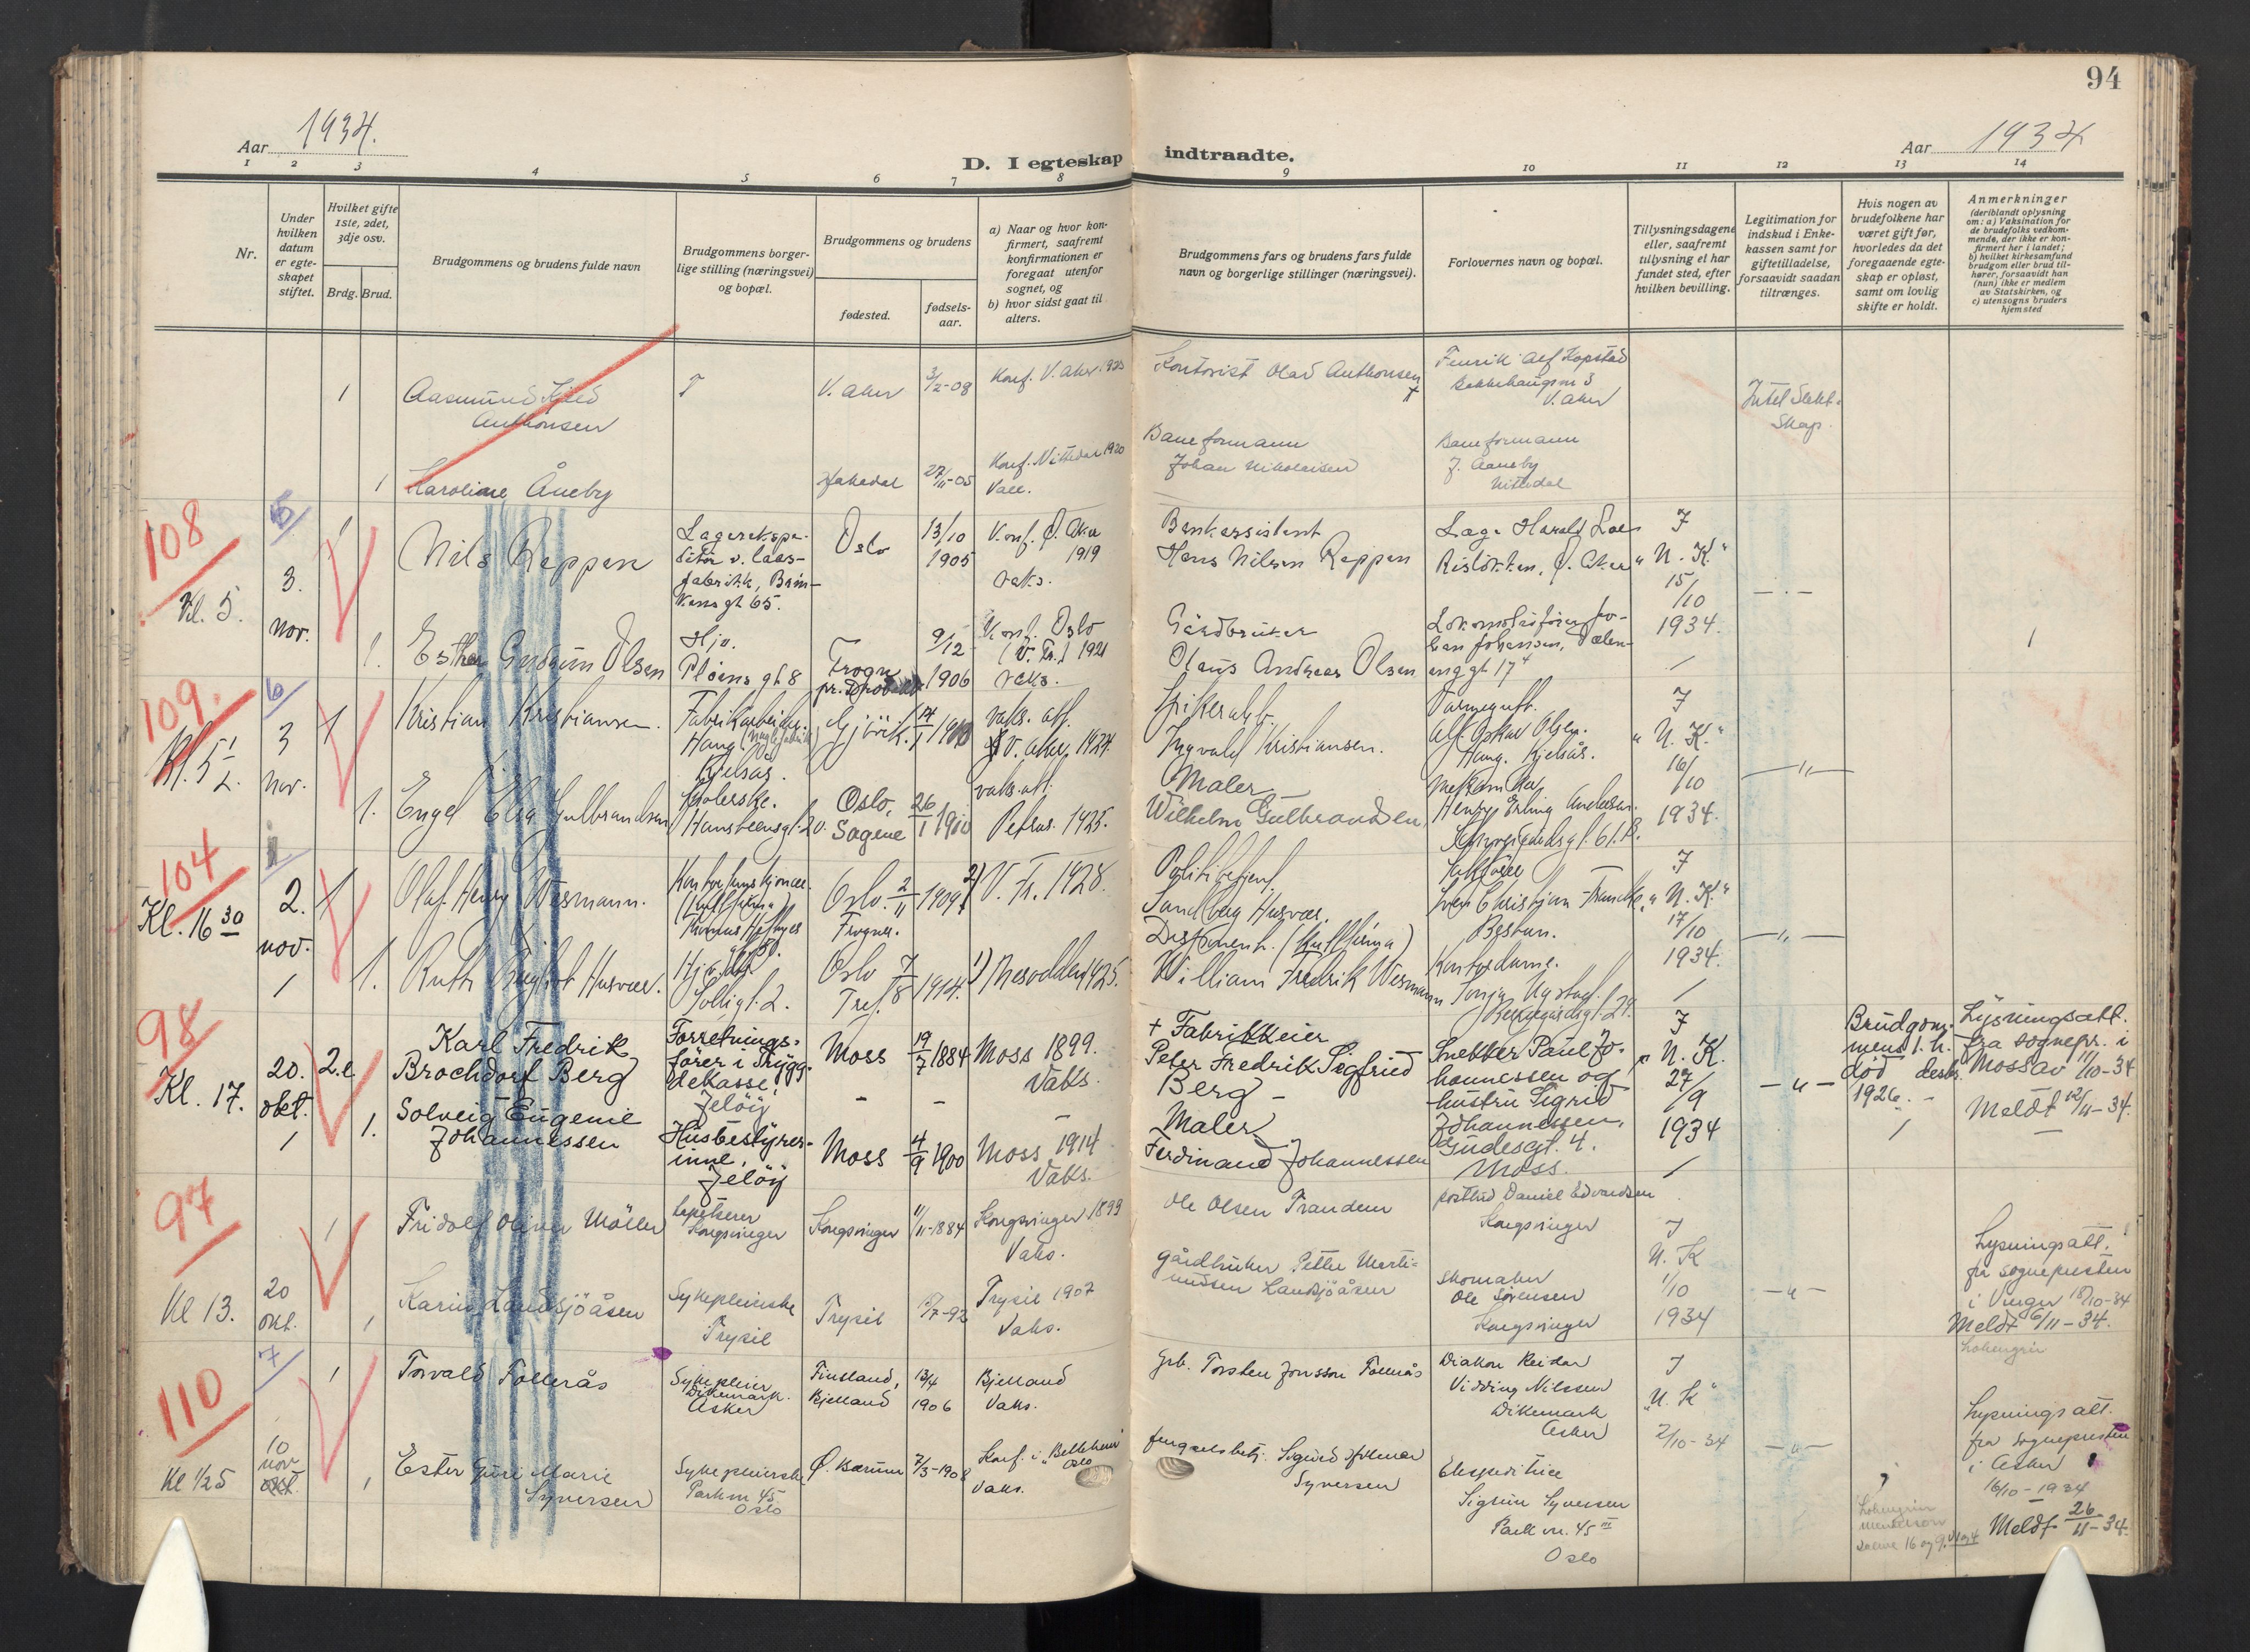 94
Aar 1934.
D. I egteskap indtraadte.
Aar 1934
1 2 3 4 5 6 7 8 9 10 11 12 13 14
Nr.
Under hvilken datum er egteskapet stiftet.
Hvilket gifte 1ste, 2det, 3dje osv.
Brdg. Brud.
Brudgommens og brudens fulde navn
Brudgommens borgerlige stilling (næringsvei) og bopæl.
Brudgommens og brudens
fødested.
fødselsaar.
a) Naar og hvor konfirmert, saafremt konfirmationen er foregaat utenfor sognet, og
b) hvor sidst gaat til alters.
Brudgommens fars og brudens fars fulde navn og borgerlige stillinger (næringsvei).
Forlovernes navn og bopæl.
Tillysningsdagene eller, saafremt tillysning ei har fundet sted, efter hvilken bevilling.
Legitimation for indskud i Enkekassen samt for giftetilladelse, forsaavidt saadan tiltrænges.
Hvis nogen av brudefolkene har været gift før, hvorledes da det foregaaende egteskap er opløst, samt om lovlig skifte er holdt.
Anmerkninger
(deriblandt oplysning om: a) Vaksination for de brudefolks vedkommende, der ikke er konfirmert her i landet; b) hvilket kirkesamfund brudgom eller brud tilhører, forsaavidt han (hun) ikke er medlem av Statskirken, og c) utensogns bruders hjemsted
1 Aasmund Kjeld
Anthonsen
V. Aker 3/2-08 Konf. V. Aker 1923
Kontorist Olad Anthonsen +
Fenrik Alf Hopstad
Bekkehaugsv 3
V. Aker
Intet Slektskap.
1 Karoline Åneby
Hakadal 27/11-05 Konf. Nittedal 1920
Vacc.
Baneformann
Johan Nikolaisen
Baneformann
J. Aaneby
Nittedal
108
Kl. 5.
5
3.
nov.
1
Nils Reppen
Lagerekspeditør v. Laasfabrikk,
gt 65.
Oslo
13/10
1905
Konf. Ø. Aker
1919
vaks.
Bankassistent
Hans Nilsen Reppen
Læge Harald
Risløkken, Ø. Aker
I
"U. K."
15/10
1934.
1. Esther Gudrun Olsen
Hjv.
Pløens gt 8
Frogn
pr. Drøbak
9/12
1906
Konf. Oslo
(V. Fr.) 1921
vaks.
Gårdbruker
Olaus Andreas Olsen
Lokomotivfører Johan Johansen, Vålerenggt 17
109.
Kl. 5 1/2.
6
3
nov.
1
Kristian Kristiansen.
Fabrikarbeider.
Haug.
Kjelsås.
Gjøvik. 14/1 1910
vaks. att.
V. Aker, 1924.
Spikerarb.
Ingvald Kristiansen.
Alf Oskar Olsen.
Haug. Kjelsås.
I
"U. K."
16/10
1934.
1. Engel Elsa Gulbrandsen
Hansteensgt. 20.
Oslo,
Sagene
26/1 1910
vaks. att.
Petrus. 1925.
Maler
Wilhelm Gulbrandsen,
Henry Erling Andersen.
104
Kl. 16 30
2.
nov.
1
1
Olaf Henry Wesmann.
Thomas Heftyes
gt. 50.
Oslo.
Frogner.
2/11 1909
2) V. Fr. 1928.
Politibetjent.
Sandberg Husvær.
Sven Christian Francke
Bestun.
I
"U. K."
17/10
1934.
1. Ruth Husvær.
Solligt. 2.
Oslo
Tref.
7/8 1914.
1) Nesodden 1925.
Disponent. (Kullfirma)
William Fredrik Wesmann
Kontordame.
98
Kl. 17.
20.
okt.
1
2.e
Karl Fredrik
Brochdorf Berg
Forretningsfører i Tryggdekasse,
Jeløy
Moss 19/7 1884
Moss 1899.
Vaks.
+ Fabrikkeier
Peter Fredrik Sigfried
Berg
Snekker Paul Johannessen og
hustru Sigrid
Johannessen,
Gudesgt. 4.
Moss.
I
"U. K.
27/9
1934
Brudgommens 1. h.
død
1926.
Lysningsatt.
fra sognepr. i
Moss av 11/10-34
Meldt 12/11-34.
1. Solveig Eugenie
Johannessen
Husbestyrerinne,
Jeløy
Moss 4/9 1900
Moss 1914
Vaks.
Maler
Ferdinand Johannessen
97
Kl 13.
20
okt.
1
Fridolf Oliver Møller
Tapetserer
Kongsvinger
Kongsvinger 11/11-1884
Kongsvinger 1899
Vaks.
Ole Olsen Trandem
Postbud Daniel Edvardsen
Kongsvinger
I
U. K
1/10
1934
Lysningsatt.
fra sognepresten
i Vinger 18/10-34
Meldt 6/11-34.
Lohengrin
1 Karin Landsjöåsen
Sykepleierske
Trysil
Trysil
/7-92
Trysil 1907
Vaks.
Gårdbruker Petter Martinusen Landsjöåsen
Skomaker
Ole Sørensen
Kongsvinger
110
Kl 1/2 5
7
10
nov
okt.
1
Torvald Follerås
Sykepleier
Dikemark.
Asker
Finsland,
Bjelland
13/4
1906
Bjelland
Vaks.
Grb. Torsten Jonsson Follerås
Diakon Reidar
Vidding Nilssen
Dikemark
Asker
I
"U. K"
2/10-34
Lysningsatt.
fra sognepresten
i Asker
16/10-1934
Meldt 26/11-34.
1 Ester Guri Marie
Syversen
Sykepleierske
Parkv. 45
Oslo
Ø. Bærum 7/3-1908
Konf. i "Betlehem"
Oslo
Vaks.
Fengselsbetj. Sigurd Hilmar
Syversen
Ekspeditrice
Sigrun Syversen
Parkvn. 45 III
Oslo
Lohengrin
Mendelson
Salme 16 og 9. V 1 og 4